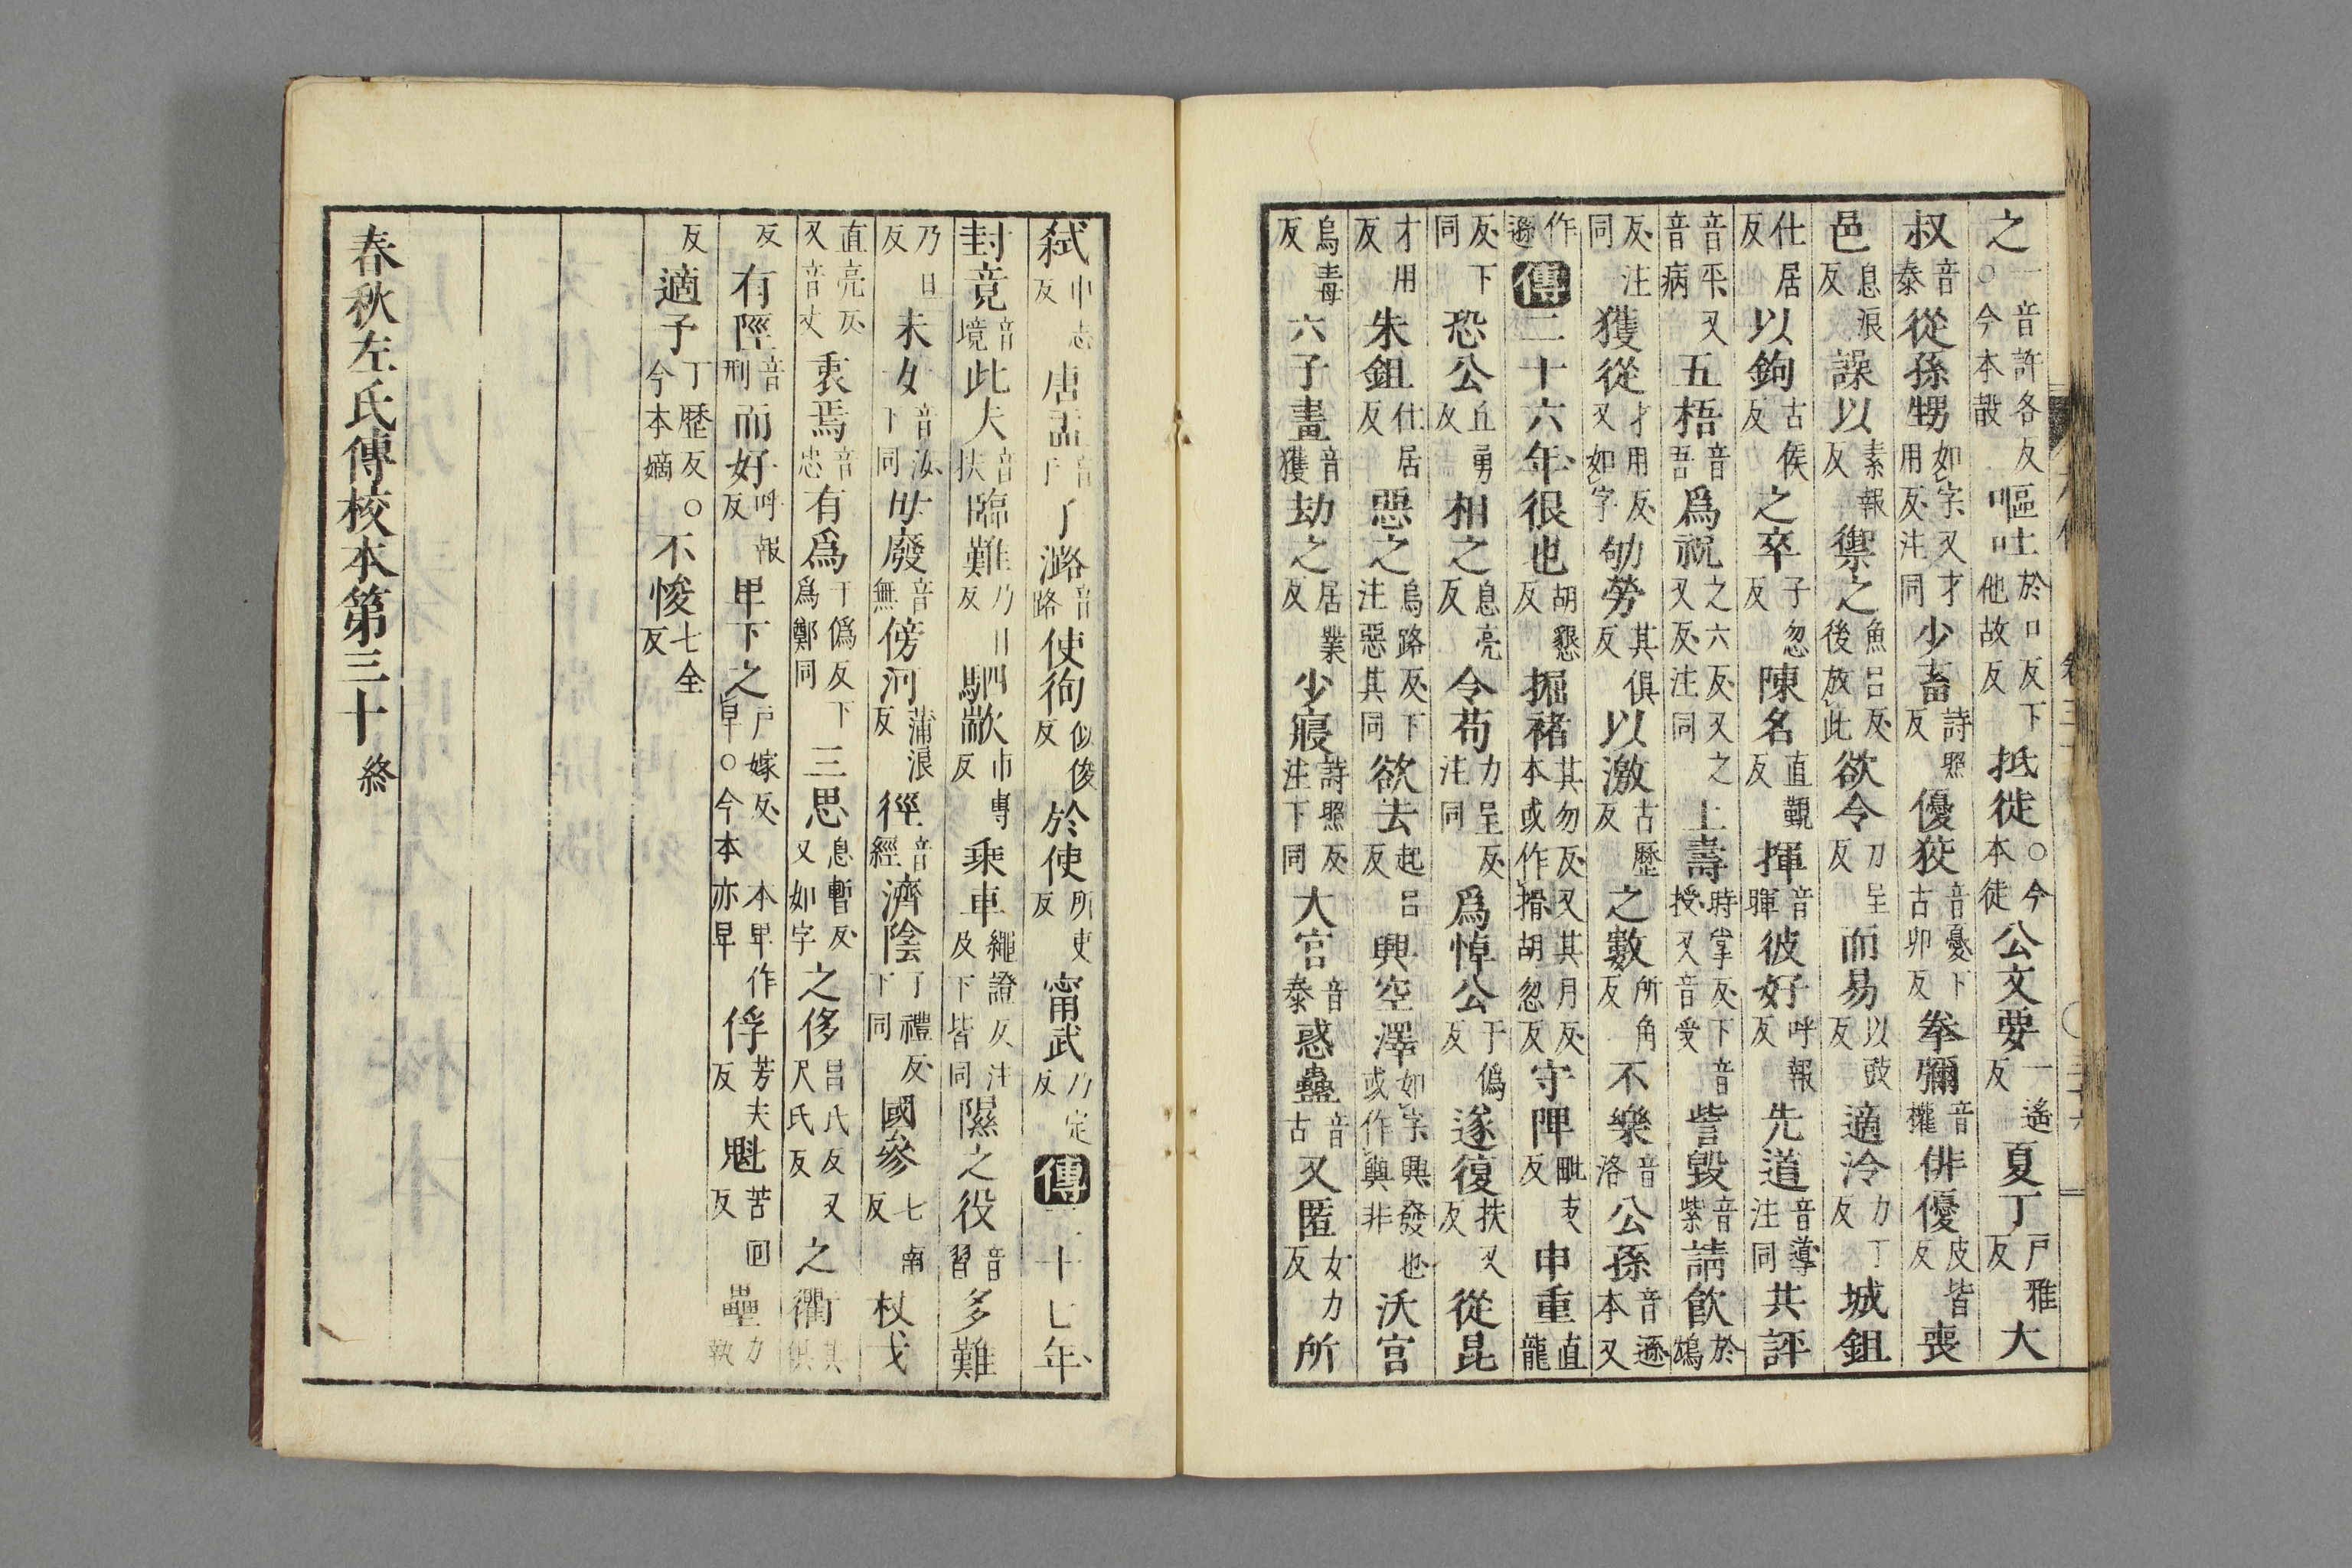 之一音許各反○今本㱿嘔吐於口反下他故反抵徒○今本徒公文要一遙反夏丁戸雅反大
叔音泰從孫甥如字又才用反注同少畜詩照反優狡音憂下古卯反拳彌音權俳優皮皆反喪
邑息浪反譟以素報反禦之魚呂反後放此欲令力呈反而易以豉反適泠力丁反城鉏
仕居反以鉤古侯反之卒子忽反陳名直覲反揮音暉彼好呼報反先道音導注同共評
音平又音病五梧音吾爲祝之六反又之又反注同上壽時掌反下音授又音受訾毀音紫請飲於鴆
反注同獲從才用反又如字劬勞其俱反以激古歷反之數所角反不樂音洛公孫音遜本又
作遜傳二十六年很也胡懇反掘褚其勿反又其月反本或作搰胡忽反守陴毗支反申重直龍
反下同恐公丘勇反相之息亮反令苟力呈反注同爲悼公于僞反遂復扶又反從昆
才用反朱鉏仕居反惡之烏路反下注惡其同欲去起呂反興空澤如字興發也或作與非沃宮
烏毒反六子畫音獲劫之居業反少寢詩照反注下同大宮音泰惑蠱音古又匿女力反所
弒申志反唐盂音于了潞音路使徇似俊反於使所吏反甯武乃定反傳二十七年
封竟音境此夫音扶臨難乃旦反駟歂市專反乘車繩證反注及下皆同隰之役音習多難
乃旦反未女音汝下同毋廢音無傍河蒲浪反徑音經濟陰子禮反下同國參七南反杖戈
直亮反又音丈衷焉音忠有爲于僞反下爲鄭同三思息暫反又如字之侈昌氏反又尺氏反之衢其俱
反有陘音刑而好呼報反早下之戸嫁反本早作早○今本亦早俘芳夫反魁苦回反壘力執
反適子丁歷反○今本嫡不悛七全反
春秋左氏傳校本第三十終